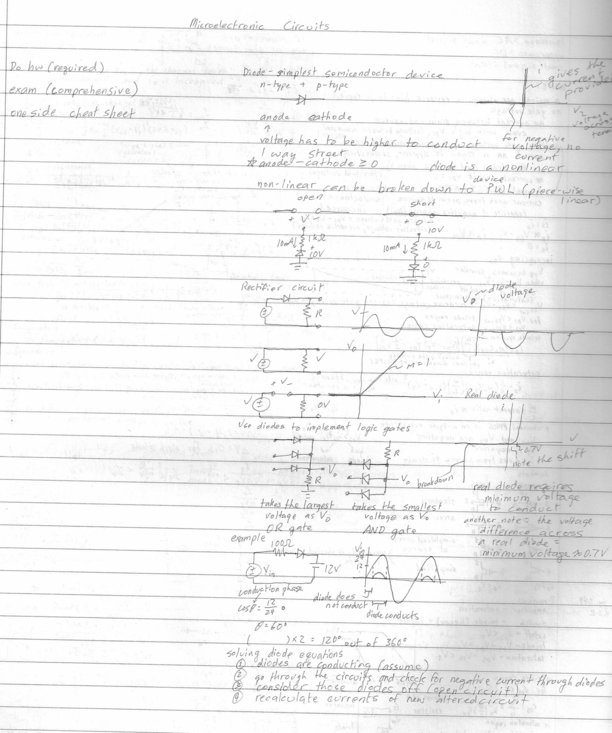 Microelectronic Circuits
Do hw (required)
exam (comprehensive)
one side cheat sheet
Diode - simplest semiconductor device
n-type + p-type
anode cathode
voltage has to be higher to conduct
1 way street
☆ anode - cathode ≥ 0
i gives the
current
provided
V
voltage
across
for negative
voltage, no
current
diode is a nonlinear
device
non-linear can be broken down to PWL (piece-wise
linear)
open
+ V -
short
+ 0 -
10V
10mA ↓ 1kΩ
+
10V
-
10V
10mA ↓ 1kΩ
+
0
-
Rectifier circuit
R
V
diode
voltage
V
V
+ V -
V
0V
V₀
m = 1
Vi
Real diode
i
V
≈0.7V
note the shift
breakdown
Use diodes to implement logic gates
V₀
R
R
V₀
takes the largest
voltage as V₀
OR gate
takes the smallest
voltage as V₀
AND gate
real diode requires
minimum voltage
to conduct
another note = the voltage
difference across
a real diode =
minimum voltage ≈ 0.7V
example
100Ω
Vin
12V
24
12
conduction phase
cosθ = 12/24
θ = 60°
( ) x 2 = 120° out of 360°
diode does
not conduct
diode conducts
solving diode equations
① diodes are conducting (assume)
② go through the circuits and check for negative current through diodes
③ consider those diodes off (open circuit)
④ recalculate currents of new altered circuit